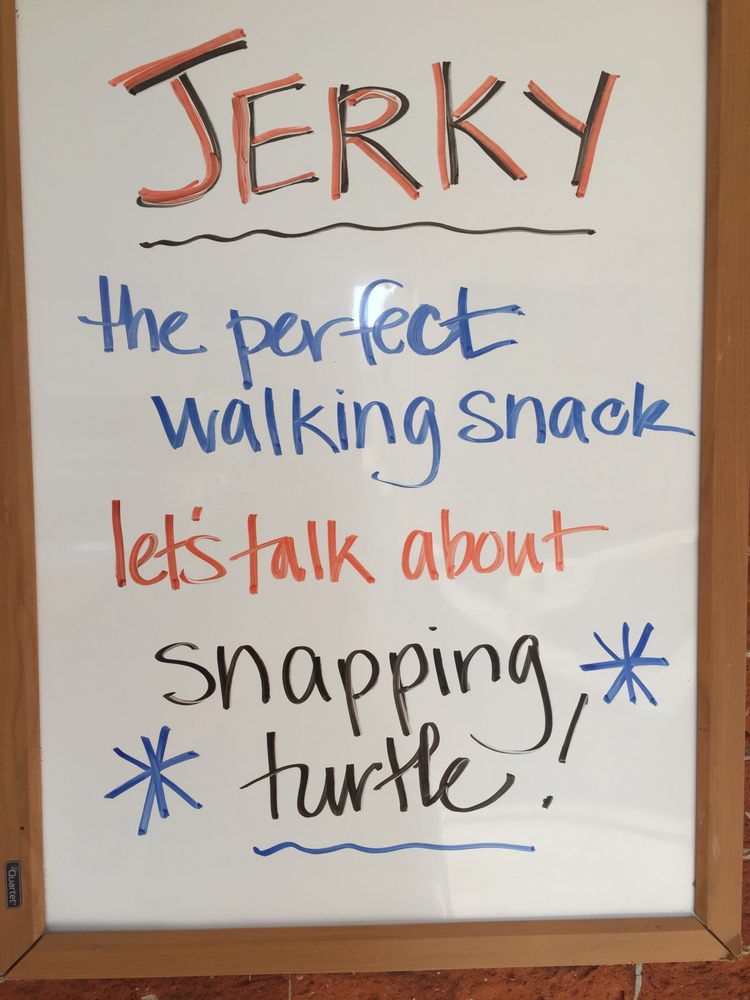 JERKY
the perfect
walking snack
let's talk about
snapping
turtle!
Quartet